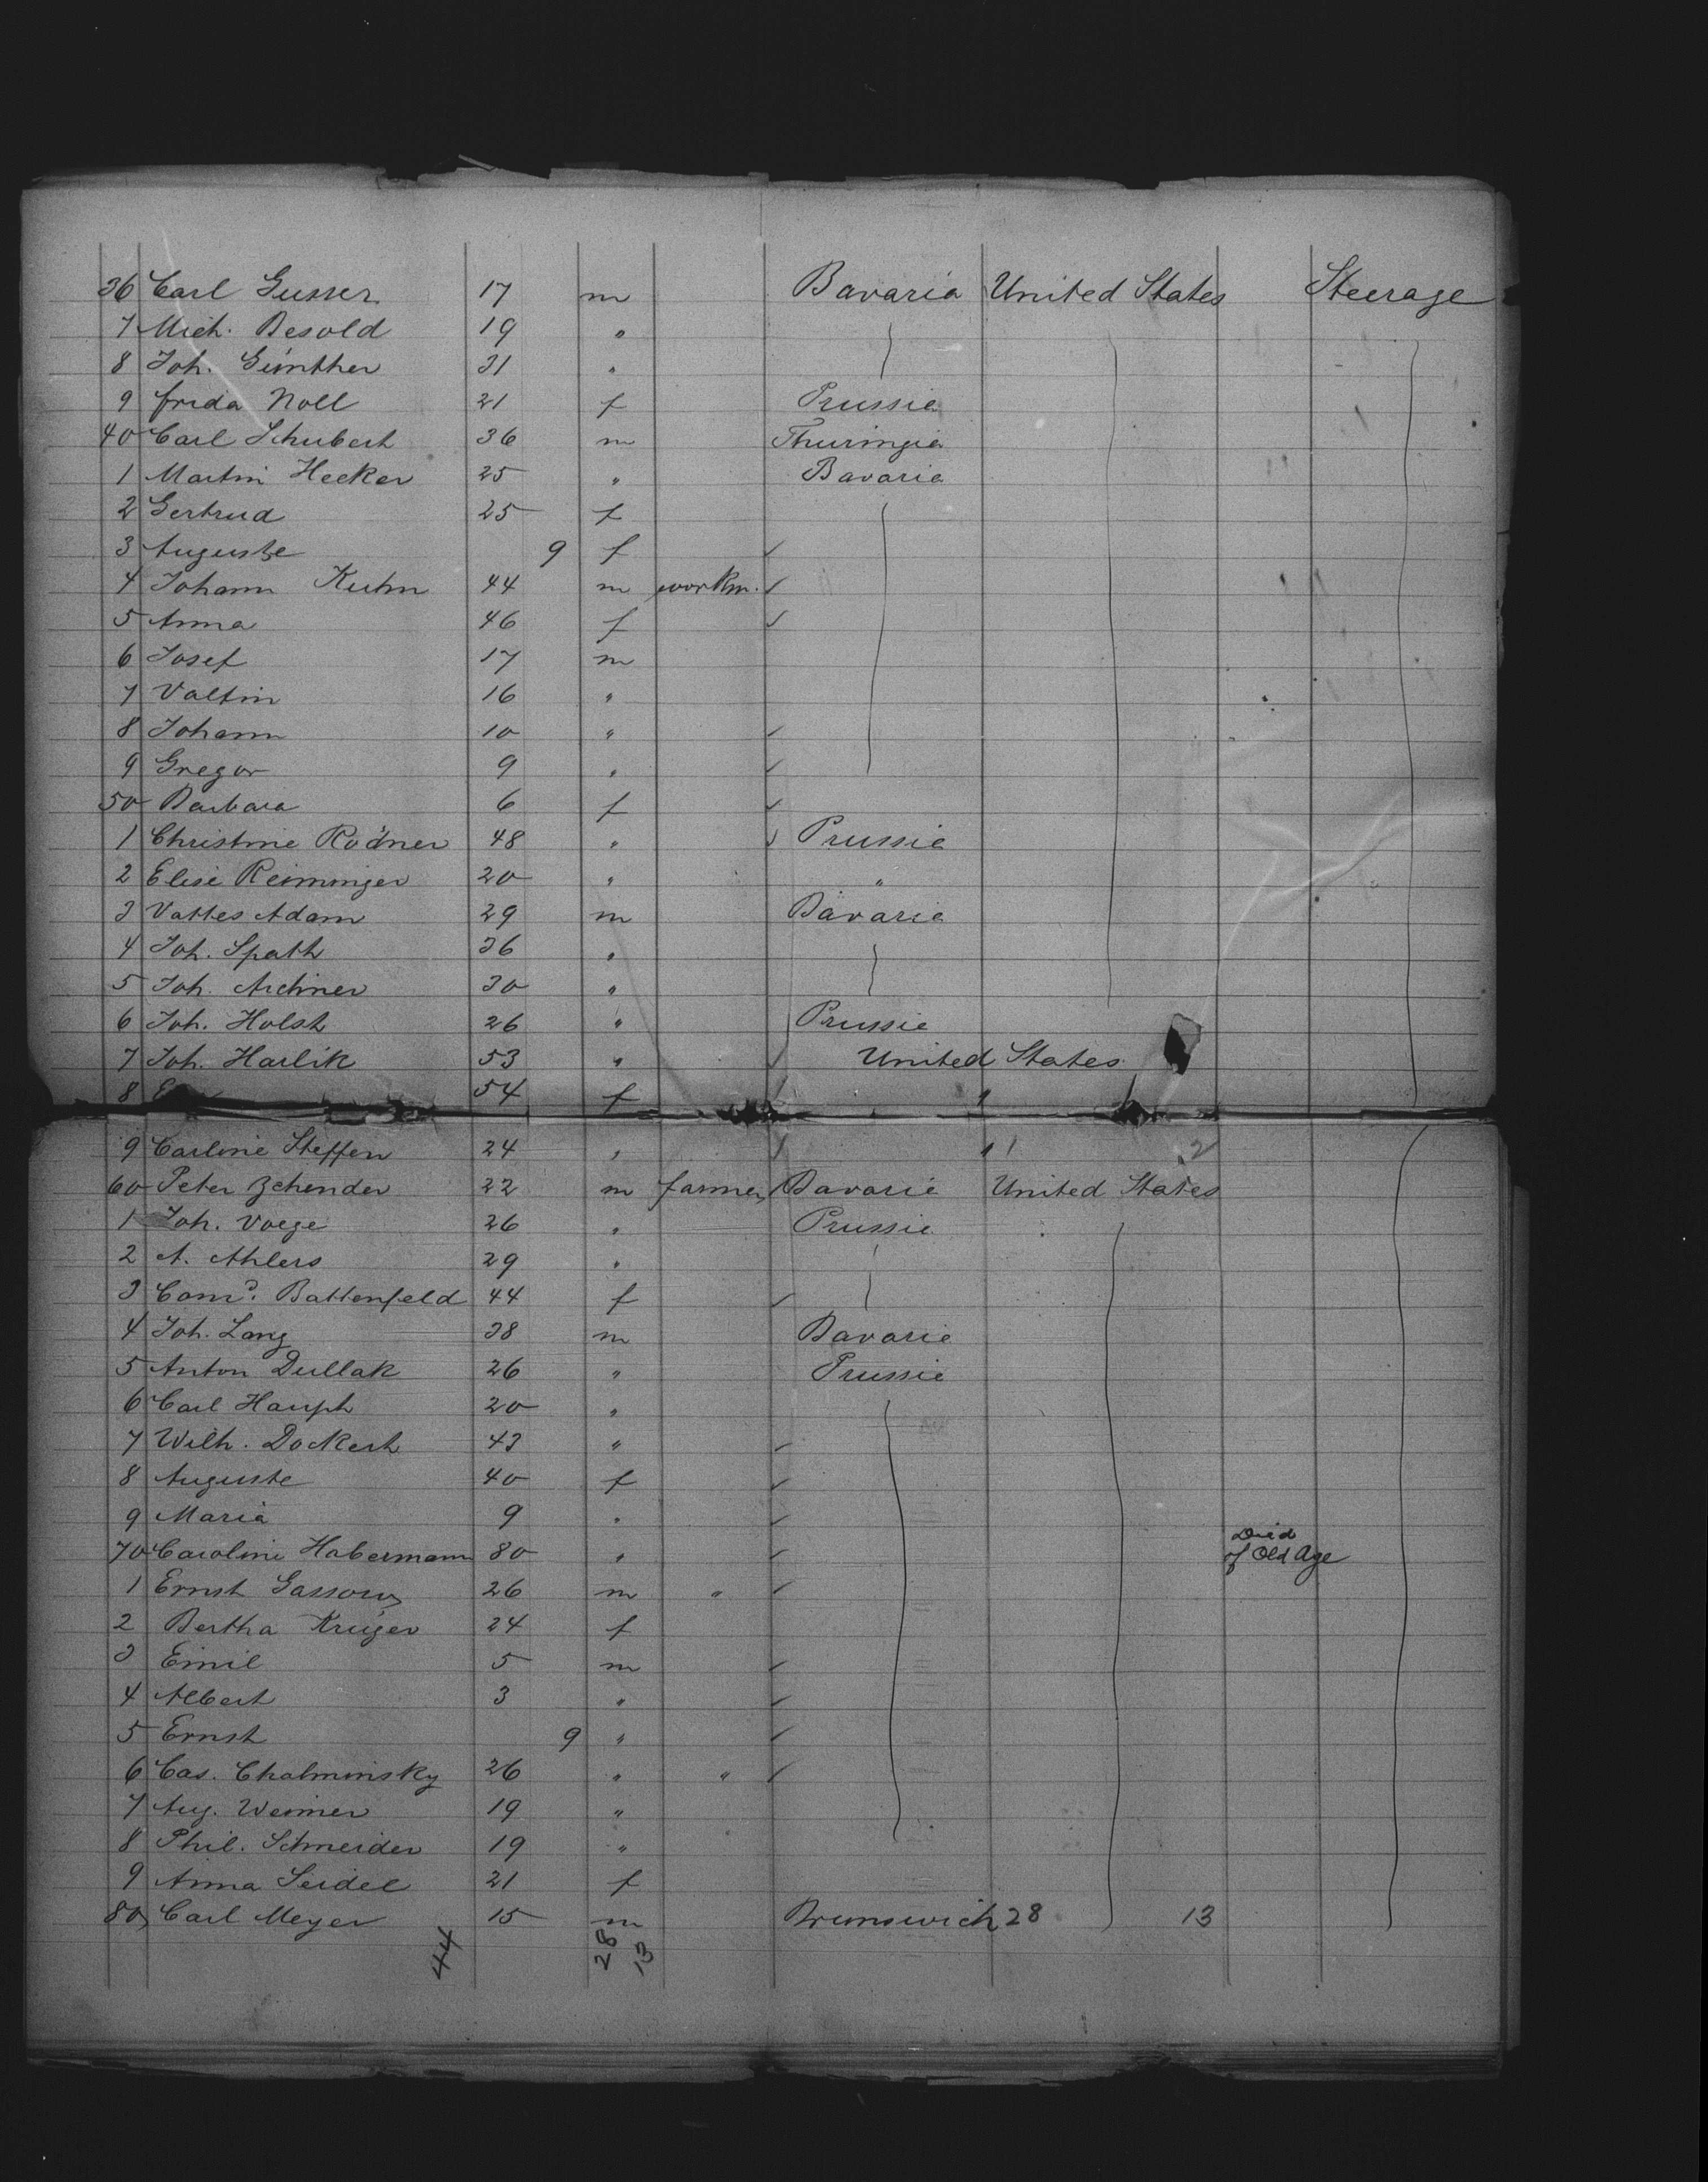 36 Carl Gusser 17 m Bavaria United States Steerage
7 Mich. Besold 19 "
8 Joh. Günther 31 "
9 Frida Noll 21 f Prussia
40 Carl Schubert 36 m Thuringia
1 Martin Hecker 25 " Bavaria
2 Gertrud 25 f
3 Auguste 9 f
4 Johann Kuhn 44 m workm.
5 Anna 46 f
6 Josef 17 m
7 Valtin 16 "
8 Johann 10 "
9 Gregor 9 "
50 Barbara 6 f
1 Christine Rodner 48 " Prussia
2 Elise Reiminger 20 " "
3 Vattes Adam 29 m Bavaria
4 Joh. Spath 36 "
5 Joh. Aichner 30 "
6 Joh. Holst 26 " Prussia
7 Joh. Harlik 53 " United States
8 54 f "
9 Carline Steffen 24 " " 2
60 Peter Zehender 22 m farmer Bavaria United States
1 Joh. Voege 26 " Prussia
2 A. Ahlers 29 "
3 Battenfeld 44 f
4 Joh. Lang 38 m Bavaria
5 Anton Dullak 26 " Prussia
6 Carl Haupt 20 "
7 Wilh. Dockert 43 "
8 Auguste 40 f
9 Maria 9 "
70 Caroline Habermann 80 " Died of Old Age
1 Ernst Gassow 26 m "
2 Bertha Krüger 24 f
3 Emil 5 m
4 Albert 3 "
5 Ernst 9 "
6 Cas. Chalminsky 26 " "
7 Aug. Weimer 19 "
8 Phil. Schneider 19 "
9 Anna Seidel 21 f
80 Carl Meyer 15 m Brunswich 28 13
44 28 13